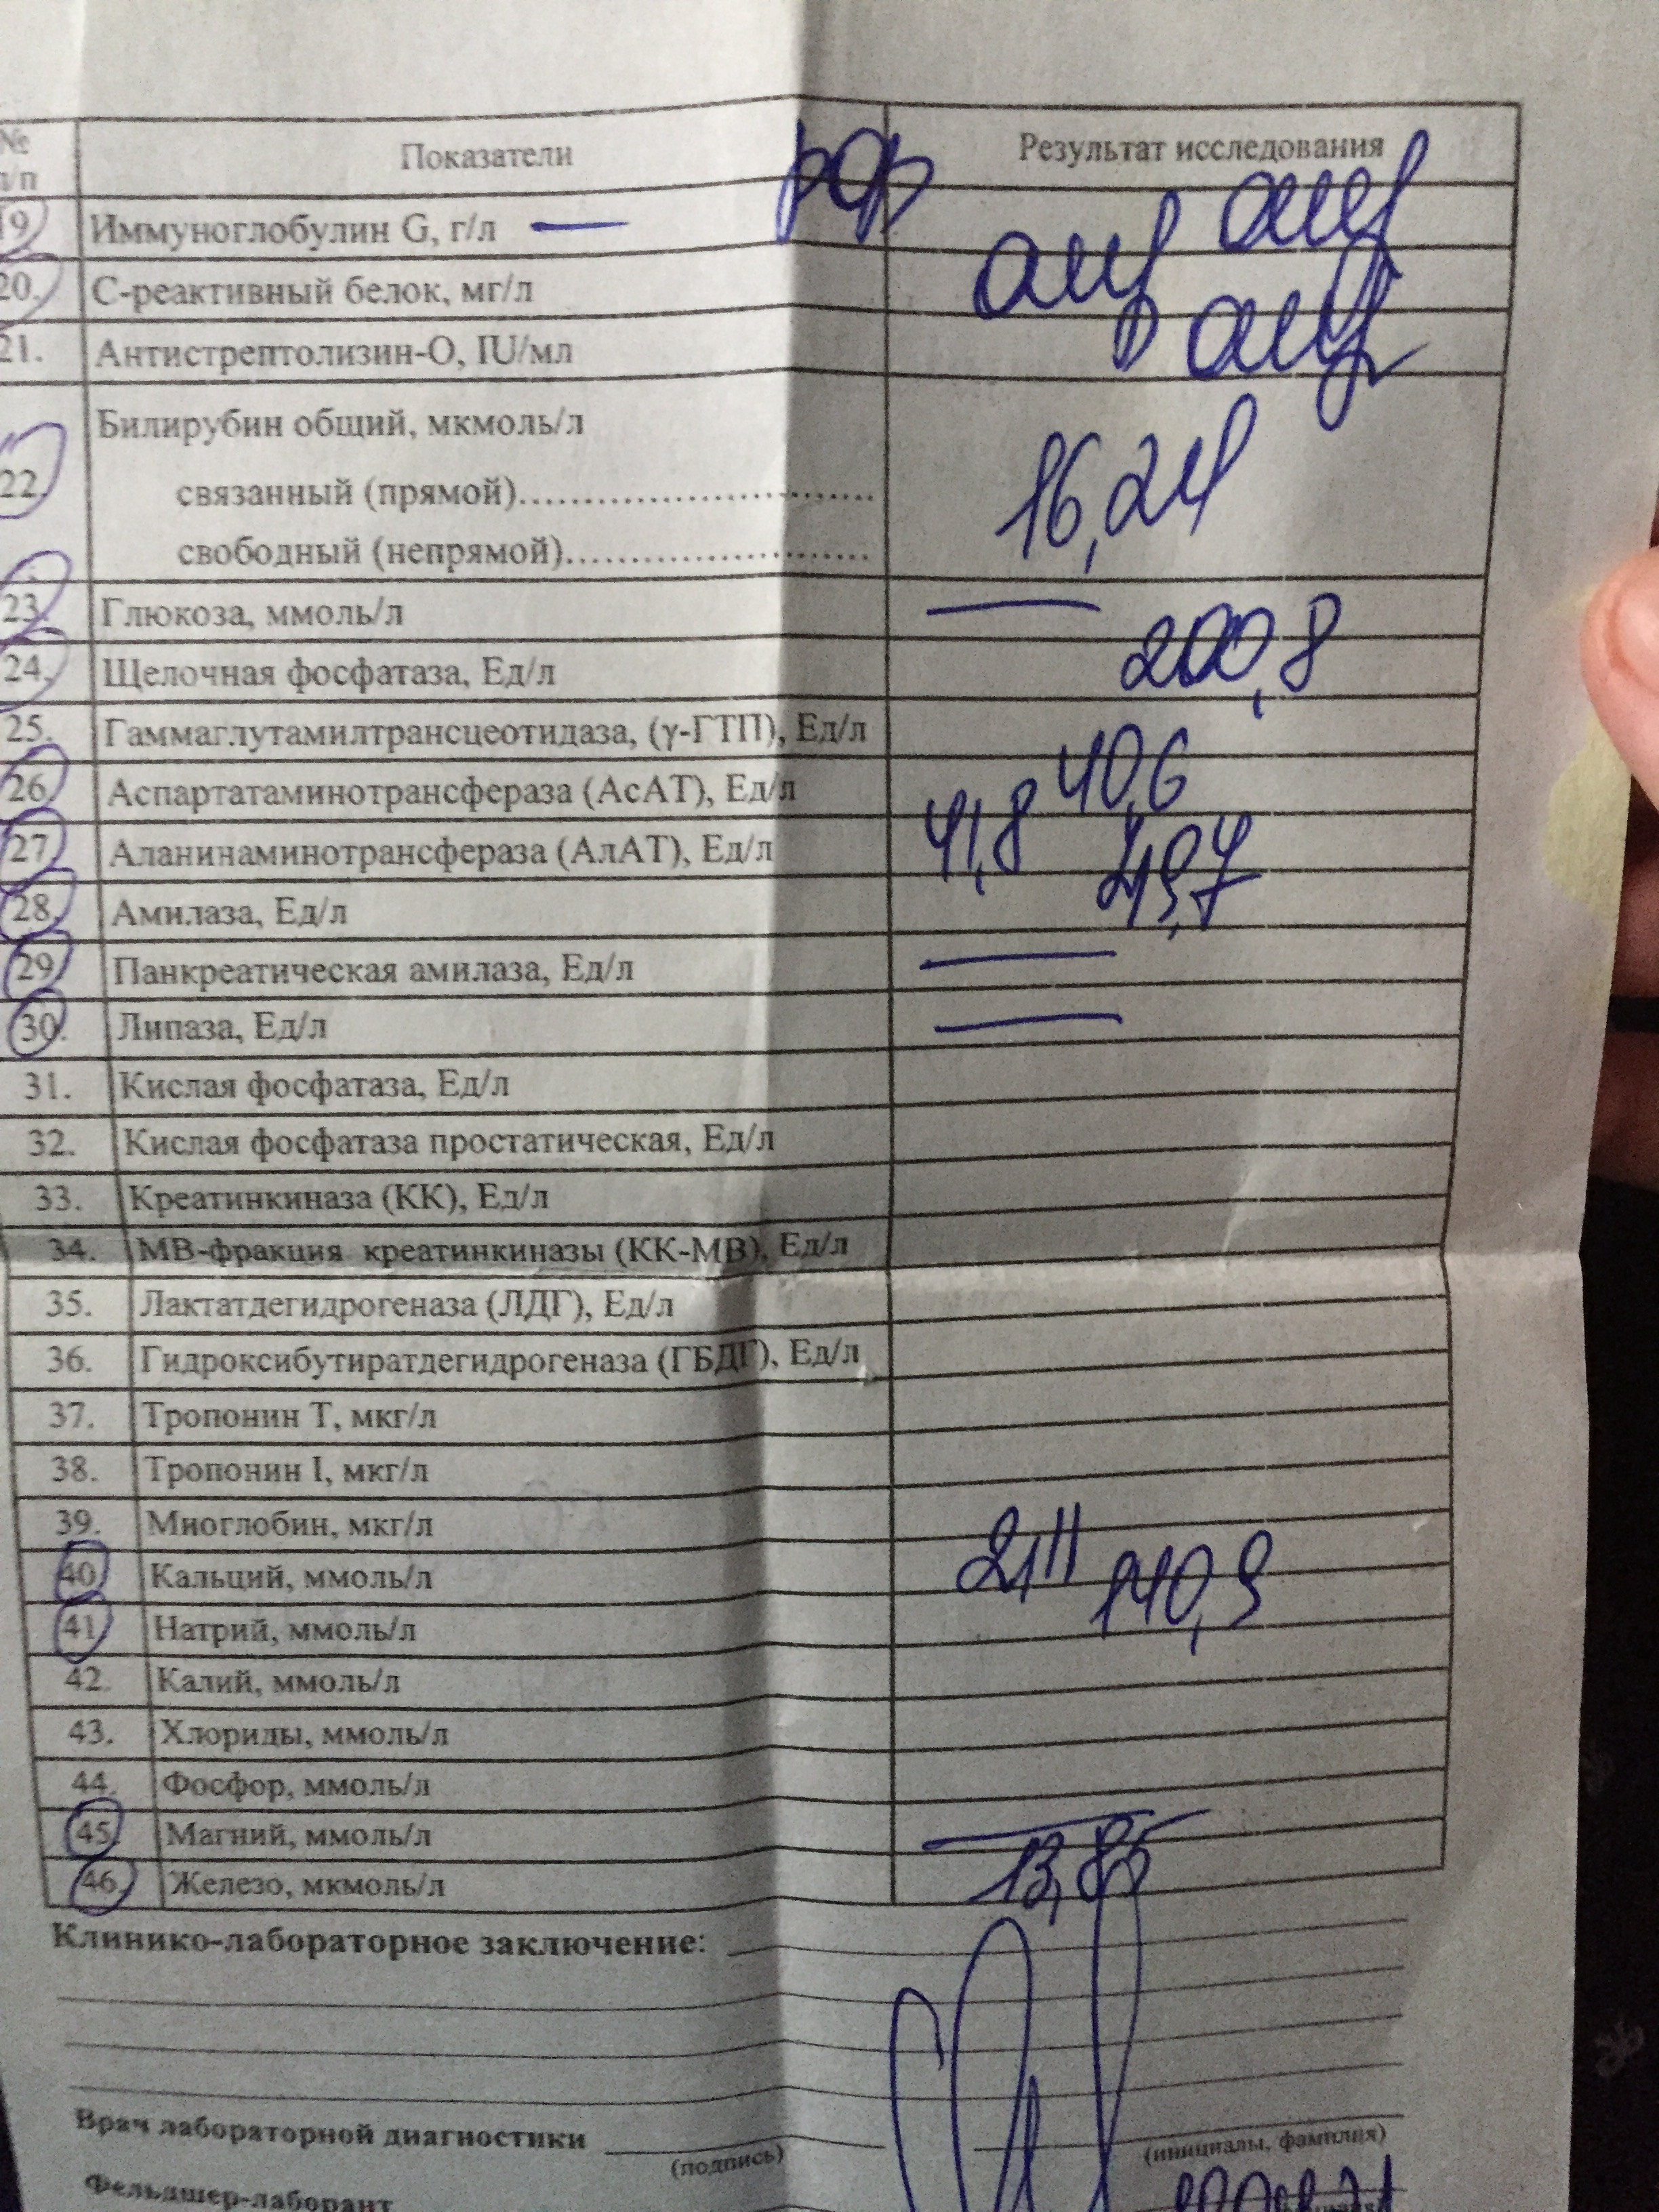 № п/п Показатели Результат исследования
19. Иммуноглобулин G, г/л — рф отр
20. С-реактивный белок, мг/л отр
21. Антистрептолизин-О, IU/мл отр
22. Билирубин общий, мкмоль/л
связанный (прямой) 16,24
свободный (непрямой)
23. Глюкоза, ммоль/л —
24. Щелочная фосфатаза, Ед/л 200,8
25. Гаммаглутамилтрансцеотидаза, (γ-ГТП), Ед/л
26. Аспартатаминотрансфераза (АсАТ), Ед/л 40,6
27. Аланинаминотрансфераза (АлАТ), Ед/л 41,8
28. Амилаза, Ед/л 49,7
29. Панкреатическая амилаза, Ед/л —
30. Липаза, Ед/л —
31. Кислая фосфатаза, Ед/л
32. Кислая фосфатаза простатическая, Ед/л
33. Креатинкиназа (КК), Ед/л
34. МВ-фракция креатинкиназы (КК-МВ), Ед/л
35. Лактатдегидрогеназа (ЛДГ), Ед/л
36. Гидроксибутиратдегидрогеназа (ГБДГ), Ед/л
37. Тропонин Т, мкг/л
38. Тропонин I, мкг/л
39. Миоглобин, мкг/л
40. Кальций, ммоль/л 2,11
41. Натрий, ммоль/л 140,9
42. Калий, ммоль/л
43. Хлориды, ммоль/л
44. Фосфор, ммоль/л
45. Магний, ммоль/л —
46. Железо, мкмоль/л 13,85
Клинико-лабораторное заключение:
Врач лабораторной диагностики
(подпись) (инициалы, фамилия)
Фельдшер-лаборант